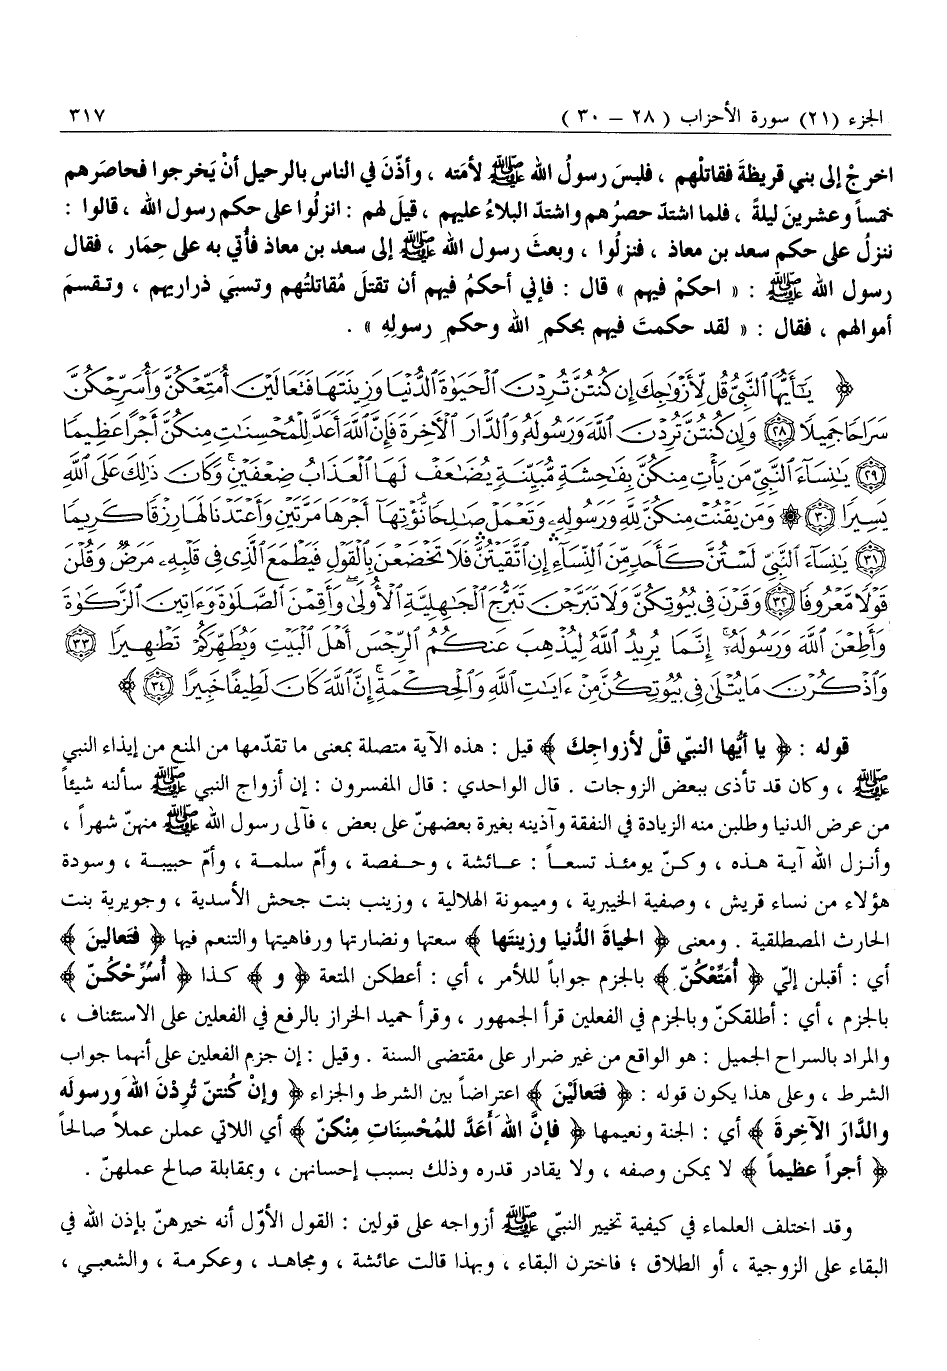 الجزء (٢١) سورة الأحزاب ( ٢٨ - ٣٠ ) ٣١٧
اخرجْ إلى بني قريظةَ فقاتلْهم ، فلبسَ رسولُ الله ﷺ لأمَته ، وأذّنَ في الناس بالرحيل أنْ يَخرجوا فحاصَرهم
خمساً وعشرينَ ليلةً ، فلما اشتدّ حصرُهم واشتدّ البلاءُ عليهم ، قيلَ لهم : انزلُوا على حكم رسول الله ، قالوا :
ننزلُ على حكم سعد بن معاذ ، فنزلُوا ، وبعثَ رسول الله ﷺ إلى سعد بن معاذ فأُتي به على حِمار ، فقال
رسول الله ﷺ : « احكمْ فيهم » قال : فإني أحكمُ فيهم أن تقتلَ مُقاتلتُهم وتسبيَ ذراريهم ، وتـقسمَ
أموالهم ، فقال : « لقد حكمتَ فيهم بحكمِ الله وحكمِ رسولِهِ » .
﴿ يَٰٓأَيُّهَا ٱلنَّبِىُّ قُل لِّأَزْوَٰجِكَ إِن كُنتُنَّ تُرِدْنَ ٱلْحَيَوٰةَ ٱلدُّنْيَا وَزِينَتَهَا فَتَعَالَيْنَ أُمَتِّعْكُنَّ وَأُسَرِّحْكُنَّ
سَرَاحًا جَمِيلًا ٢٨ وَإِن كُنتُنَّ تُرِدْنَ ٱللَّهَ وَرَسُولَهُۥ وَٱلدَّارَ ٱلْءَاخِرَةَ فَإِنَّ ٱللَّهَ أَعَدَّ لِلْمُحْسِنَٰتِ مِنكُنَّ أَجْرًا عَظِيمًا
٢٩ يَٰنِسَآءَ ٱلنَّبِىِّ مَن يَأْتِ مِنكُنَّ بِفَٰحِشَةٍ مُّبَيِّنَةٍ يُضَٰعَفْ لَهَا ٱلْعَذَابُ ضِعْفَيْنِ ۚ وَكَانَ ذَٰلِكَ عَلَى ٱللَّهِ
يَسِيرًا ٣٠ ۞ وَمَن يَقْنُتْ مِنكُنَّ لِلَّهِ وَرَسُولِهِۦ وَتَعْمَلْ صَٰلِحًا نُّؤْتِهَآ أَجْرَهَا مَرَّتَيْنِ وَأَعْتَدْنَا لَهَا رِزْقًا كَرِيمًا
٣١ يَٰنِسَآءَ ٱلنَّبِىِّ لَسْتُنَّ كَأَحَدٍ مِّنَ ٱلنِّسَآءِ ۚ إِنِ ٱتَّقَيْتُنَّ فَلَا تَخْضَعْنَ بِٱلْقَوْلِ فَيَطْمَعَ ٱلَّذِى فِى قَلْبِهِۦ مَرَضٌ وَقُلْنَ
قَوْلًا مَّعْرُوفًا ٣٢ وَقَرْنَ فِى بُيُوتِكُنَّ وَلَا تَبَرَّجْنَ تَبَرُّجَ ٱلْجَٰهِلِيَّةِ ٱلْأُولَىٰ ۖ وَأَقِمْنَ ٱلصَّلَوٰةَ وَءَاتِينَ ٱلزَّكَوٰةَ
وَأَطِعْنَ ٱللَّهَ وَرَسُولَهُۥٓ ۚ إِنَّمَا يُرِيدُ ٱللَّهُ لِيُذْهِبَ عَنكُمُ ٱلرِّجْسَ أَهْلَ ٱلْبَيْتِ وَيُطَهِّرَكُمْ تَطْهِيرًا ٣٣
وَٱذْكُرْنَ مَا يُتْلَىٰ فِى بُيُوتِكُنَّ مِنْ ءَايَٰتِ ٱللَّهِ وَٱلْحِكْمَةِ ۚ إِنَّ ٱللَّهَ كَانَ لَطِيفًا خَبِيرًا ٣٤ ﴾
قوله : ﴿ يا أيُّها النبيّ قلْ لأزواجِكَ ﴾ قيل : هذه الآية متصلة بمعنى ما تقدّمها من المنع من إيذاء النبي
ﷺ ، وكان قد تأذى ببعض الزوجات . قال الواحدي : قال المفسرون : إن أزواج النبي ﷺ سألنه شيئاً
من عرض الدنيا وطلبن منه الزيادة في النفقة وآذينه بغيرة بعضهنّ على بعض ، فآلى رسول الله ﷺ منهنّ شهراً ،
وأنـزل الله آيـة هـذه ، وكـنّ يومئـذ تسعـاً : عـائشة ، وحـفصة ، وأمّ سلمـة ، وأمّ حبيبـة ، وسودة
هؤلاء من نساء قريش ، وصفية الخيبرية ، وميمونة الهلالية ، وزينب بنت جحش الأسدية ، وجويرية بنت
الحارث المصطلقية . ومعنى ﴿ الحياةَ الدُّنيا وزينتَها ﴾ سعتها ونضارتها ورفاهيتها والتنعم فيها ﴿ فَتعالينَ ﴾
أي : أقبلن إليّ ﴿ أُمَتِّعْكُنّ ﴾ بالجزم جواباً للأمر ، أي : أعطكن المتعة ﴿ و ﴾ كـذا ﴿ أُسَرِّحْكُـنّ ﴾
بالجزم ، أي : أطلقكنّ وبالجزم في الفعلين قرأ الجمهور ، وقرأ حميد الخراز بالرفع في الفعلين على الاستئناف ،
والمراد بالسراح الجميل : هو الواقع من غير ضرار على مقتضى السنة . وقيل : إن جزم الفعلين على أنهما جواب
الشرط ، وعلى هذا يكون قوله : ﴿ فَتَعالَيْنَ ﴾ اعتراضاً بين الشرط والجزاء ﴿ وإنْ كُنتنّ تُرِدْنَ اللهَ ورسولَه
والدَّارَ الآخِرةَ ﴾ أي : الجنة ونعيمها ﴿ فإنَّ اللهَ أعَدَّ للمُحْسِنَاتِ مِنْكنّ ﴾ أي اللاتي عملن عملاً صالحاً
﴿ أجراً عظيماً ﴾ لا يمكن وصفه ، ولا يقادر قدره وذلك بسبب إحسانهن ، وبمقابلة صالح عملهنّ .
وقد اختلف العلماء في كيفية تخيير النبيّ ﷺ أزواجه على قولين : القول الأوّل أنه خيرهنّ بإذن الله في
البقاء على الزوجية ، أو الطلاق ؛ فاخترن البقاء ، وبهذا قالت عائشة ، ومجاهـد ، وعكرمـة ، والشعبـي ،